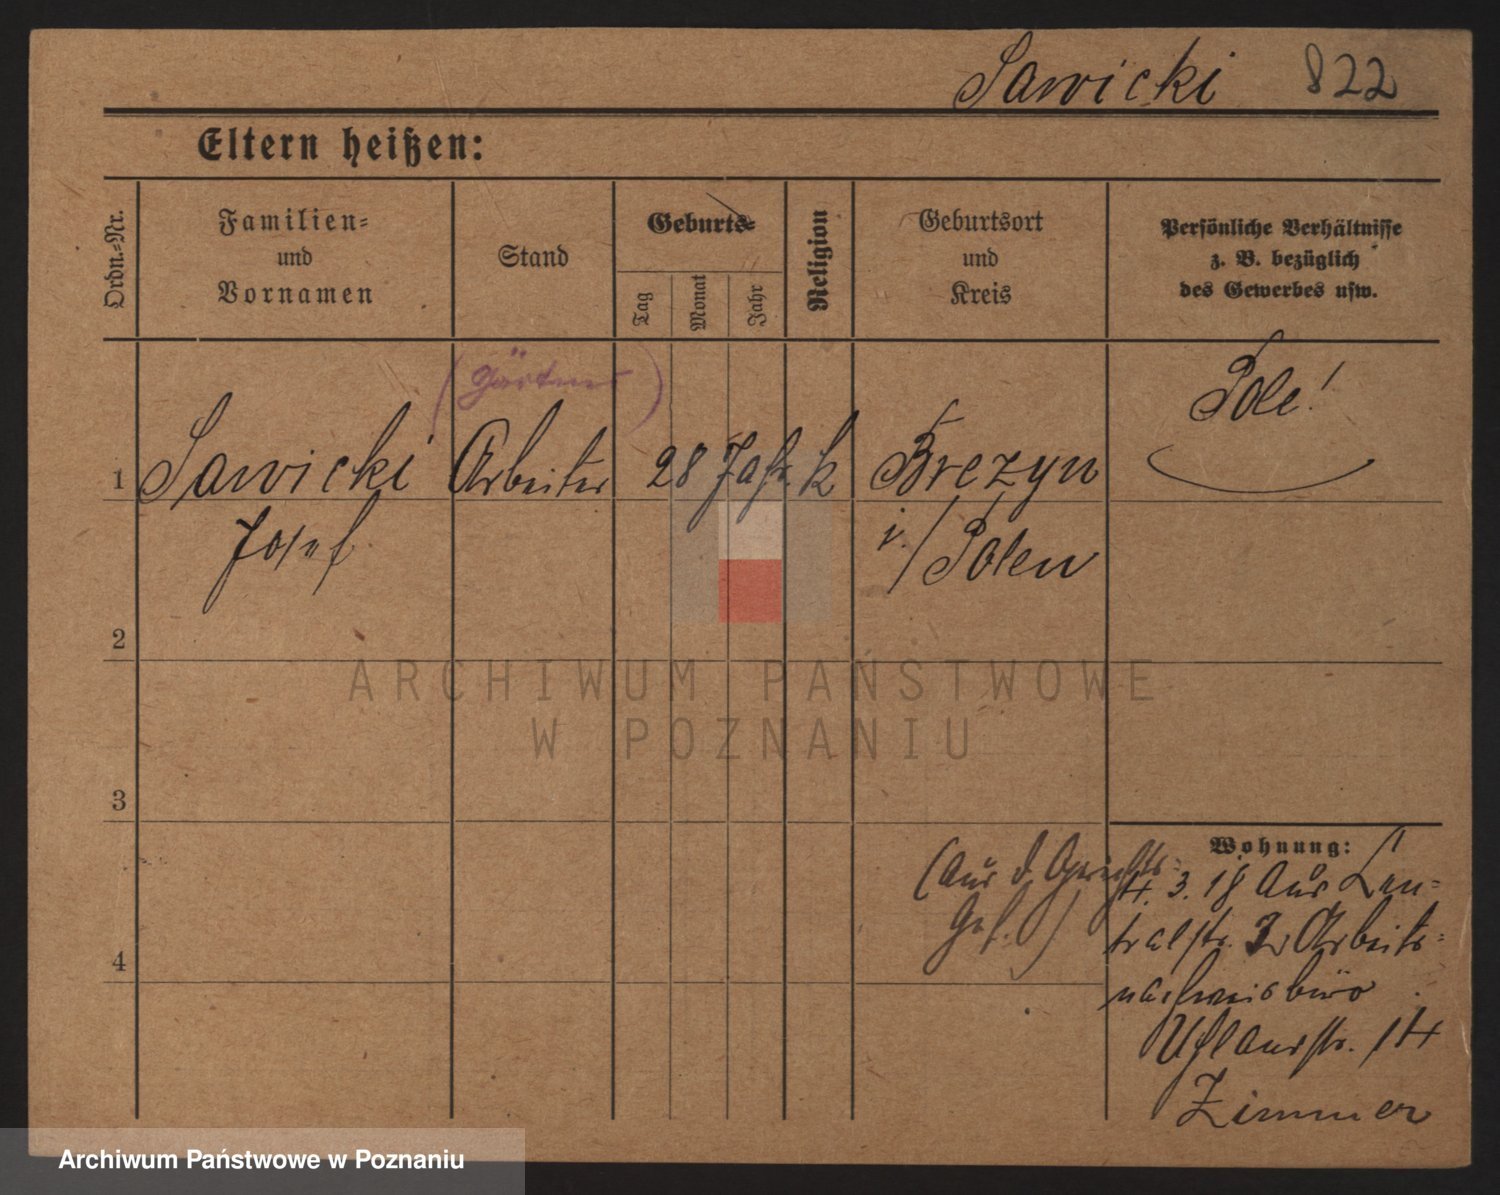 Sawicki 822
Eltern heißen:
Ordn.-Nr.
Familien-
und
Vornamen
Stand
Geburts-
Tag
Monat
Jahr
Religion
Geburtsort
und
Kreis
Persönliche Verhältnisse
z. B. bezüglich
des Gewerbes usw.
(Gärtner)
Pole!
1 Sawicki Arbeiter 28 Jahr k Brezyn
Josef i./Polen
2
3
4
(Aus d. Gerichts-
Gef.)
Wohnung:
4. 3. 18 Aus Zen-
tralstr. 2. Arbeits-
nachweisbüro
Uhlanstr. 14
Zimmer
ARCHIWUM PAŃSTWOWE
W POZNANIU
Archiwum Państwowe w Poznaniu